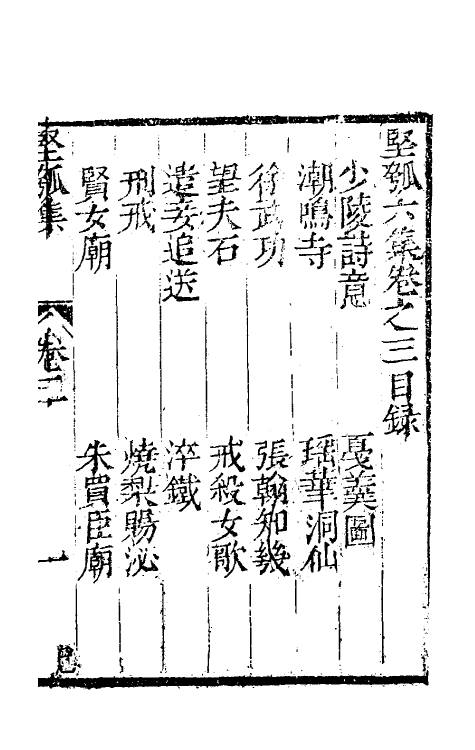 堅瓠六集卷之三目録
少陵詩意　戞羮圖
潮鳴寺　瑶華洞仙
徐武功　張翰知幾
望夫石　戒殺女歌
遣妾追送　淬鐵
刑戒　燒梨賜泌
賢女廟　朱買臣廟
堅瓠集　卷三　一